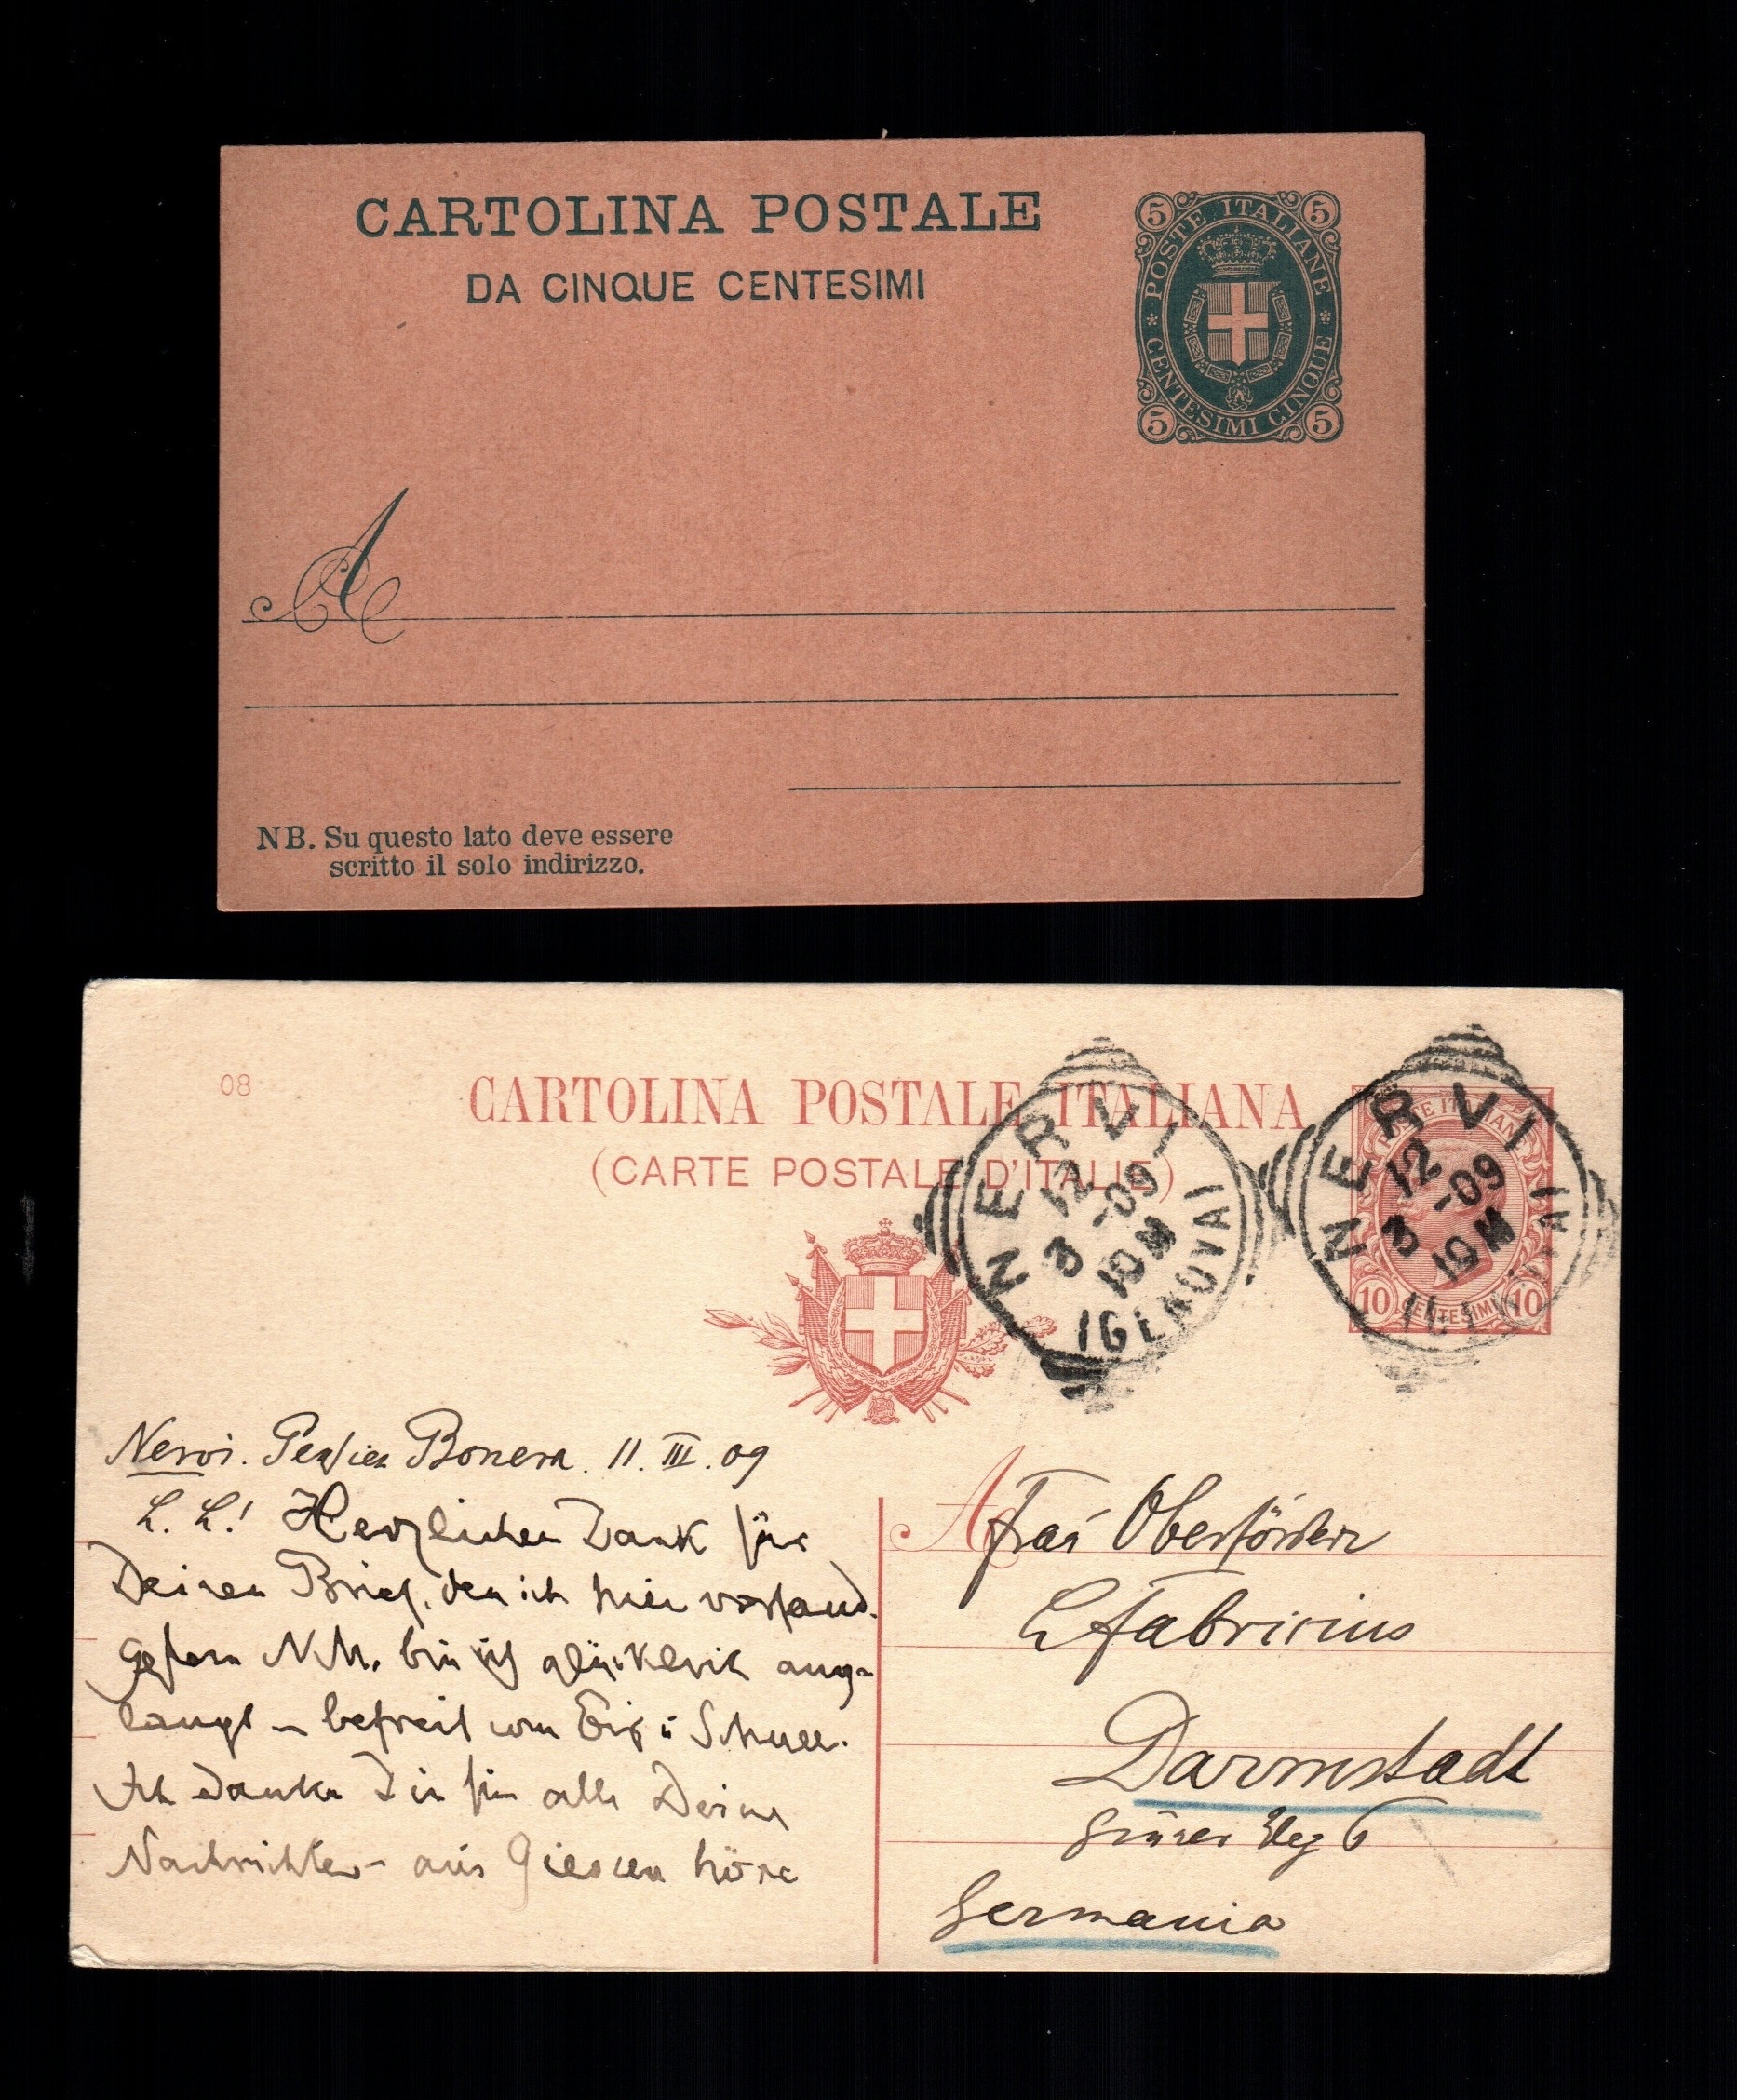 CARTOLINA POSTALE
DA CINQUE CENTESIMI
5 5
POSTE ITALIANE
CENTESIMI CINQUE
5 5
A
NB. Su questo lato deve essere
scritto il solo indirizzo.
08
CARTOLINA POSTALE ITALIANA
(CARTE POSTALE D'ITALIE)
NERVI
12
3 -09
10 M
(GENOVA)
NERVI
12
3 -09
10 M
POSTE ITALIANE
10 CENTESIMI 10
Nervi. Pension Bonera. 11. III. 09
L. L! Herzlichen Dank für
Deinen Brief, den ich hier vorfand.
Gestern N.M. bin ich glücklich ange-
langt – befreit von Eis u Schnee.
Ich danke Dir für alle Deine
Nachrichten – aus Giessen höre
A Frau Oberförster
Fabricius
Darmstadt
Grüner Weg 6
Germania